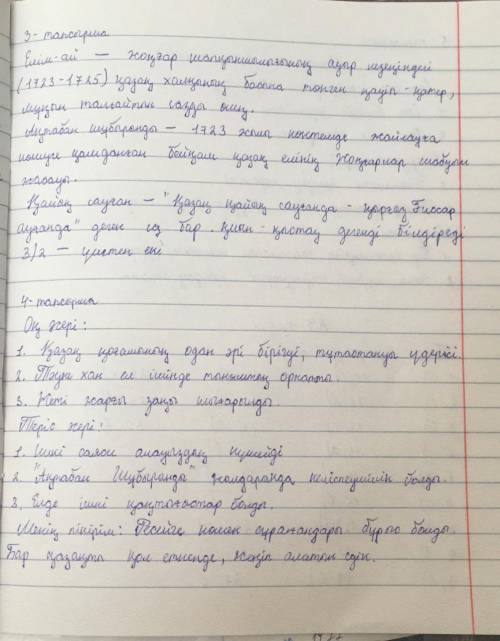 3-тапсырма
Елім-ай — жоңғар шапқыншылығының ауыр кезеңіндегі
(1723-1725) қазақ халқының басына төнген қауіп-қатер,
мұңын толғайтын сазды әуен.
Ақтабан шұбырынды — 1723 жылы көктемде жайлауға
көшуге қамданған бейқам қазақ елінің Жоңғарлар шабуыл
жасауы.
Қайың сауған — "Қазақ қайың сауғанда - қырғыз Гиссар
ауғанда" деген сөз бар. Қиын-қыстау дегенді білдіреді
3/2 — үштен екі
4-тапсырма
Оң жері:
1. Қазақ қоғамының одан әрі бірігуі, тұтастануы үдерісі.
2. Тәуке хан ел ішінде тыныштық орнатты.
3. Жеті жарғы заңы шығарылды
Теріс жері:
1. Ішкі саяси алауыздық күшейді
2. "Ақтабан Шұбырынды" жылдарында келіспеушілік болды.
3. Елде ішкі қақтығыстар болды.
Менің пікірім: Ресейге көмек сұрағандары бұрыс болды.
Бар қазақты қол еткенде, жеңіп алатын едік.